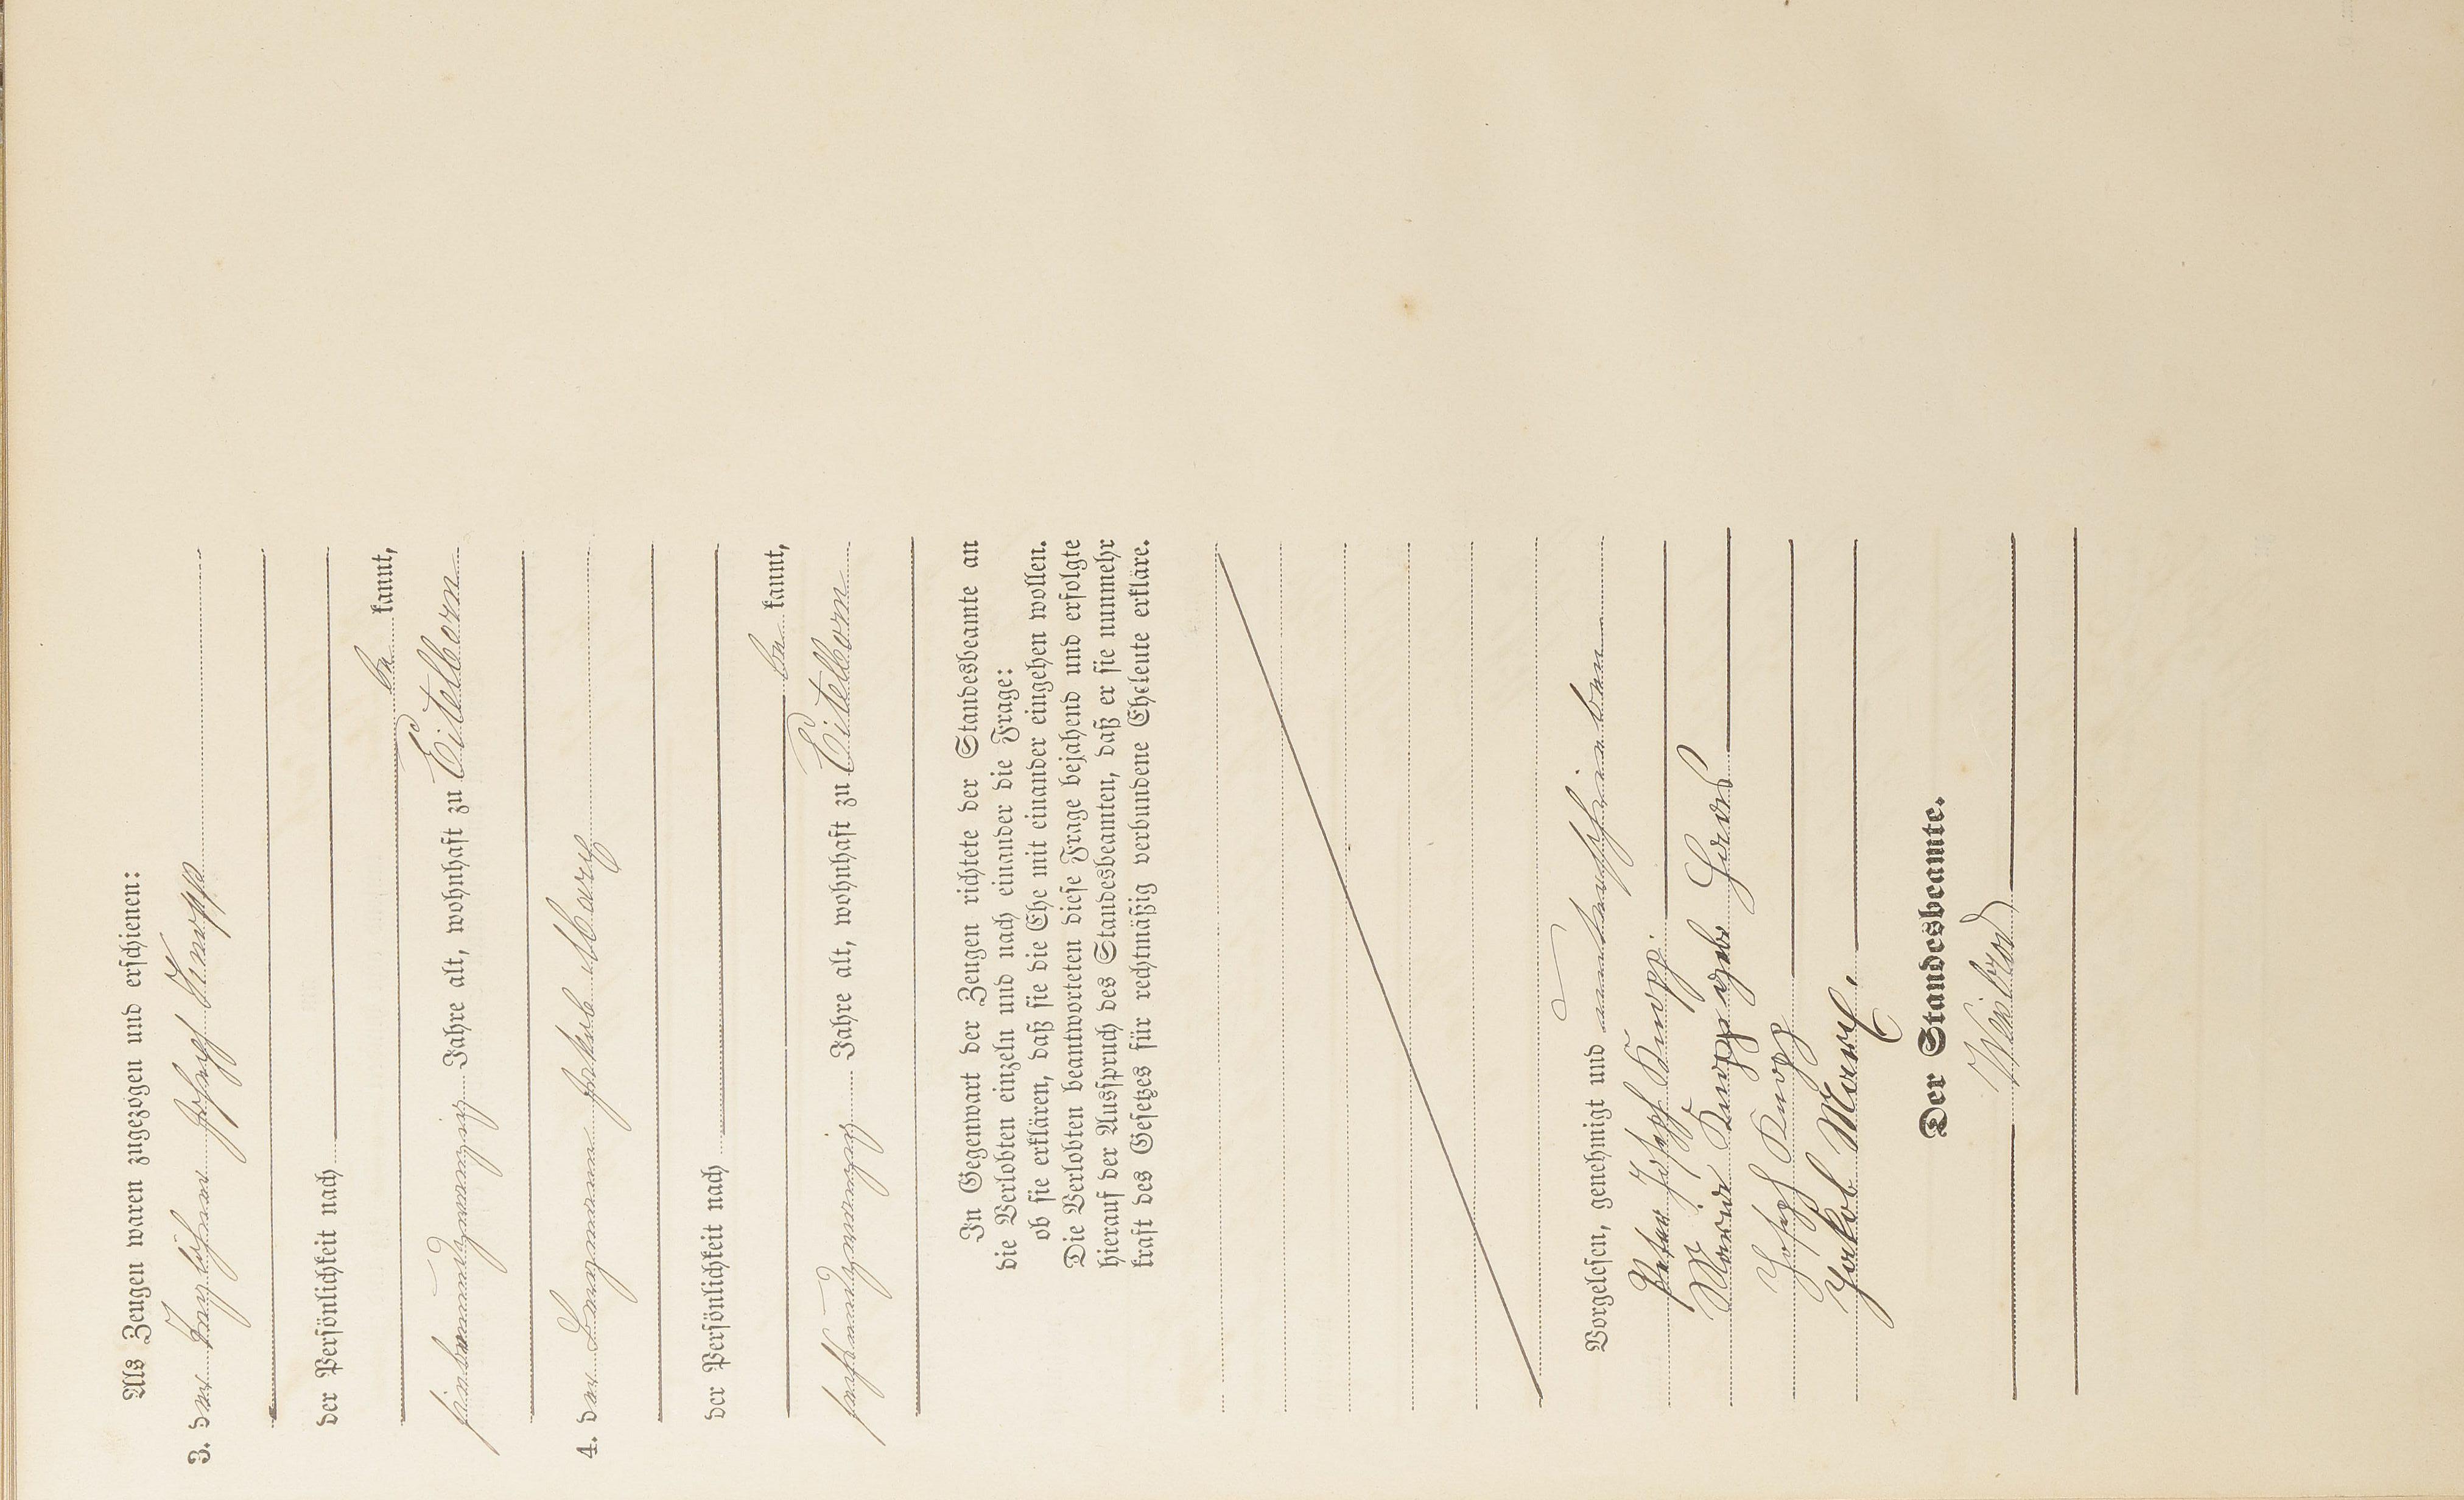 Als Zeugen waren zugezogen und erschienen:
3. der Taglöhner Joseph Knopp
der Persönlichkeit nach
be kannt,
siebenundzwanzig Jahre alt, wohnhaft zu Eitelborn
4. der Bergmann Jakob Marx
der Persönlichkeit nach
be kannt,
sechsundzwanzig Jahre alt, wohnhaft zu Eitelborn
In Gegenwart der Zeugen richtete der Standesbeamte an
die Verlobten einzeln und nach einander die Frage:
ob sie erklären, daß sie die Ehe mit einander eingehen wollen.
Die Verlobten beantworteten diese Frage bejahend und erfolgte
hierauf der Ausspruch des Standesbeamten, daß er sie nunmehr
kraft des Gesetzes für rechtmäßig verbundene Eheleute erkläre.
Vorgelesen, genehmigt und unterschrieben
Peter Joseph Knopp.
Maria Knopp geb.
Joseph Knopp
Jakob Marx.
Der Standesbeamte.